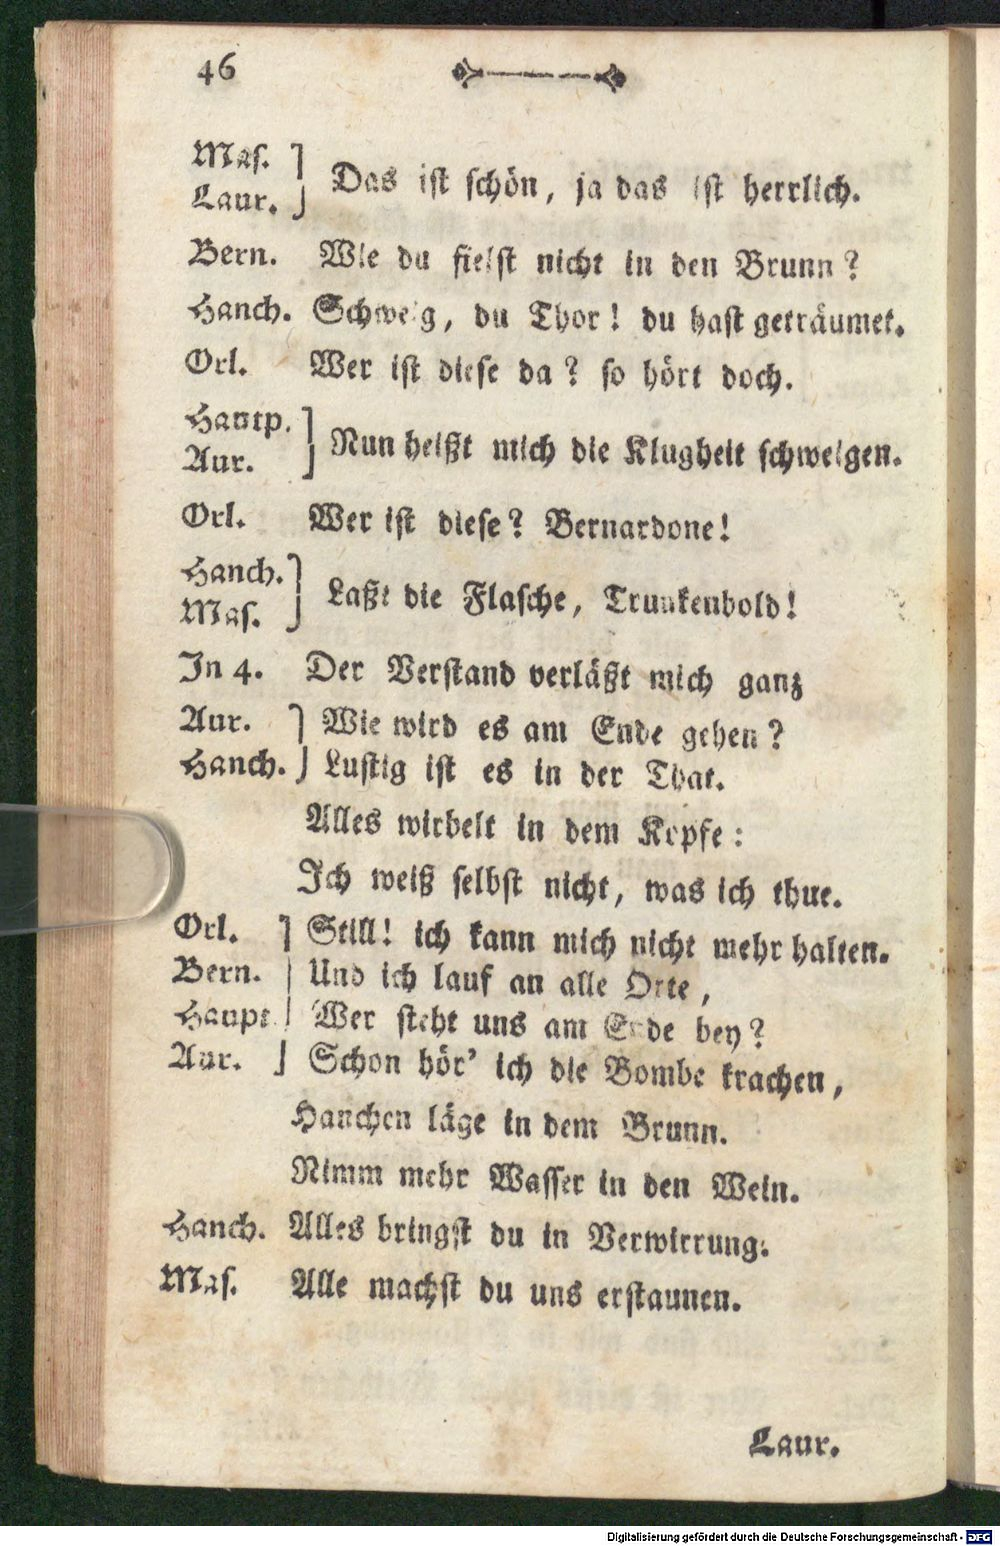 46
Mas.
Laur.
Das ist schön, ja das ist herrlich.
Bern. Wie du fielst nicht in den Brunn?
Hanch. Schweig, du Thor! du hast geträumet.
Orl. Wer ist diese da? so hört doch.
Hautp.
Aur.
Nun heißt mich die Klugheit schweigen.
Orl. Wer ist diese? Bernardone!
Hanch.
Mas.
Laßt die Flasche, Trunkenbold!
In 4. Der Verstand verläßt mich ganz
Aur. Wie wird es am Ende gehen?
Hanch. Lustig ist es in der That.
Alles wirbelt in dem Kopfe:
Ich weiß selbst nicht, was ich thue.
Orl. Still! ich kann mich nicht mehr halten.
Bern. Und ich lauf an alle Orte,
Haupt Wer steht uns am Ende bey?
Aur. Schon hör' ich die Bombe krachen,
Hanchen läge in dem Brunn.
Nimm mehr Wasser in den Wein.
Hanch. Alles bringst du in Verwirrung.
Mas. Alle machst du uns erstaunen.
Laur.
Digitalisierung gefördert durch die Deutsche Forschungsgemeinschaft - DFG